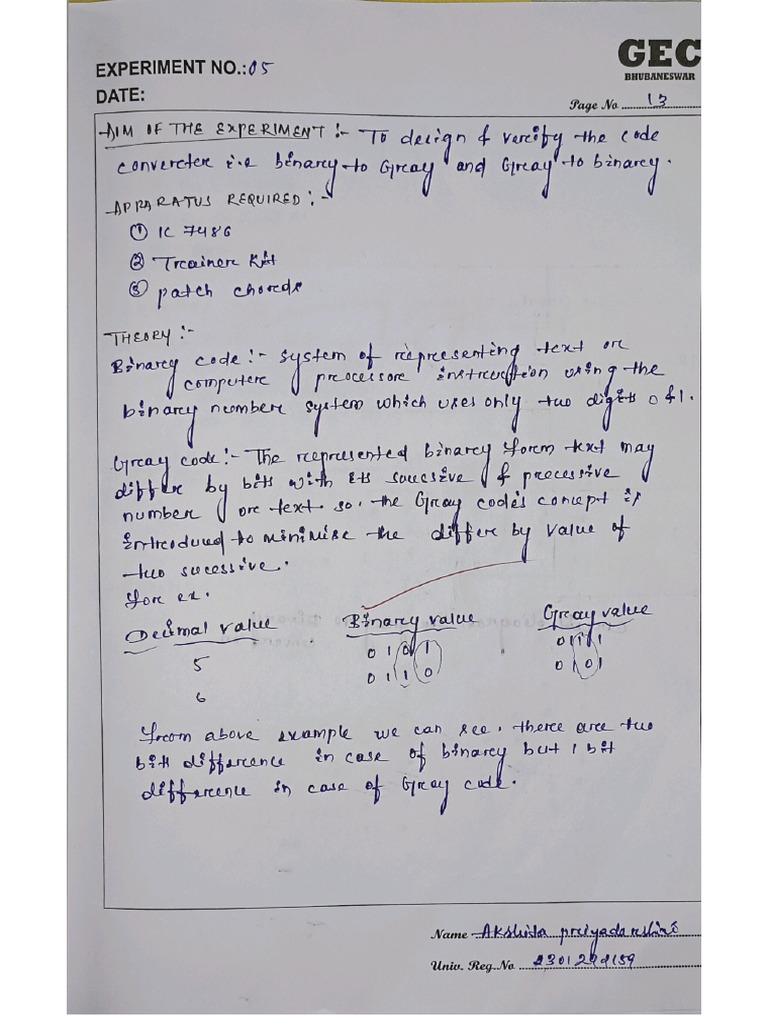 EXPERIMENT NO.: 05
GEC
BHUBANESWAR
DATE:
Page No 13
AIM OF THE EXPERIMENT :- To design & verify the code
converter i.e binary to Gray and Gray to binary.
APPARATUS REQUIRED :-
① IC 7486
② Trainer Kit
③ patch chords
THEORY :-
Binary code :- System of representing text or
computer processor instruction using the
binary number system which uses only two digits 0 & 1.
Gray code :- The represented binary form text may
differ by bits with its sucssive & precessive
number or text. so, the Gray code's concept is
introduced to minimise the differ by value of
two sucessive.
for ex.
Decimal value Binary value Gray value
5 0 1 0 1 0 1 1 1
6 0 1 1 0 0 1 0 1
from above example we can see, there are two
bit difference in case of binary but 1 bit
difference in case of Gray code.
Name Akshita priyadarshini
Univ. Reg. No